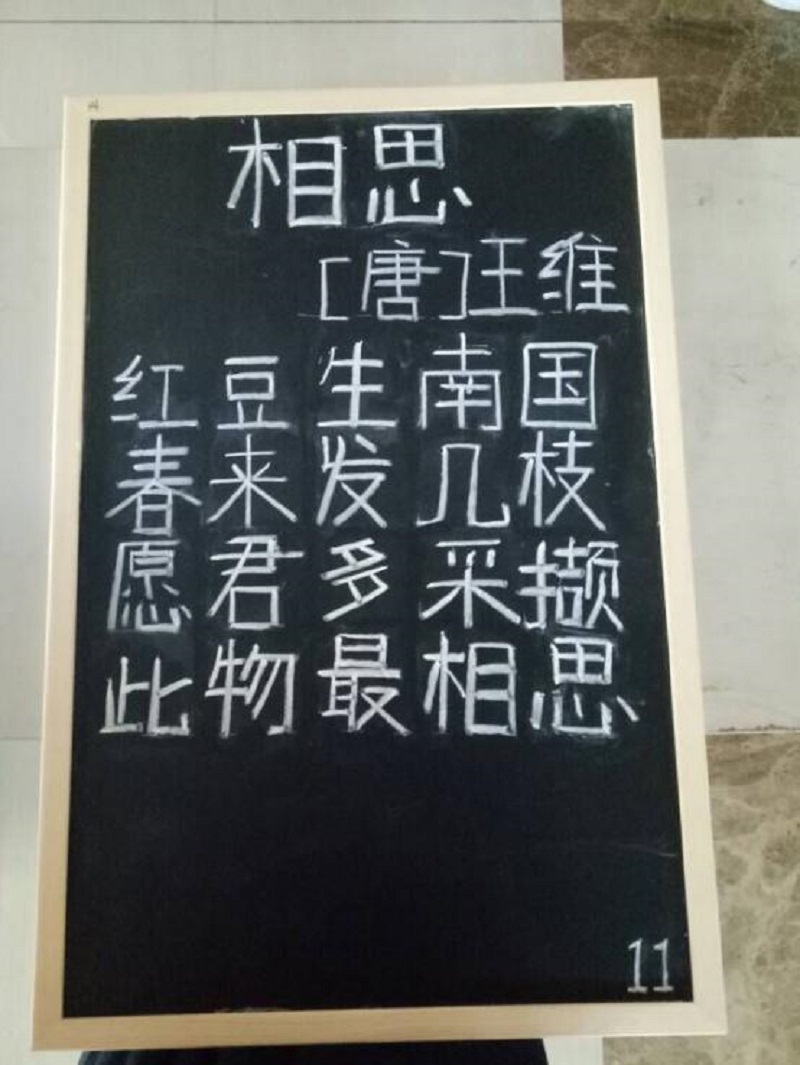 相思
[唐]王维
红豆生南国
春来发几枝
愿君多采撷
此物最相思
11